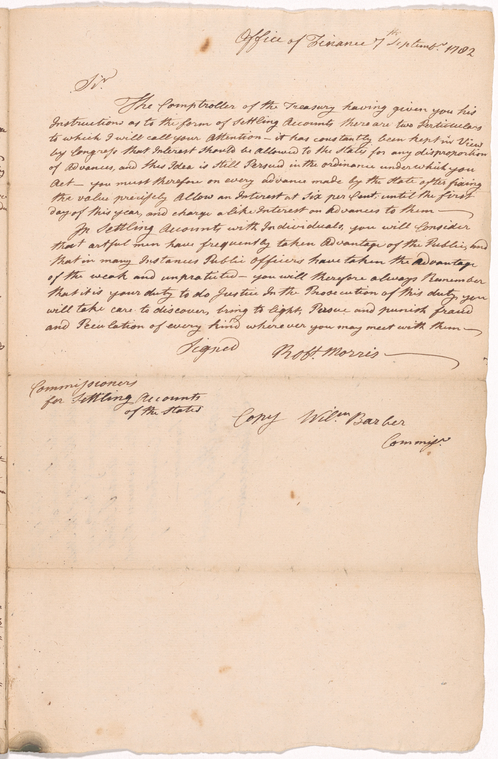 Office of Finance 7th Septembr. 1782
Sir
The Comptroller of the Treasury having given you his
Instructions as to the form of Settling Accounts there are two Particulars
to which I will call your Attention – it has constantly been kept in View
by Congress that Interest Should be allowed to the States for any disproportion
of Advances, and this Idea is Still Persued in the ordinance under which you
Act – you must therefore on every advance made by the State after fixing
the value precisely Allow an Interest at Six per Cent. until the first
day of this year, and charge a like Interest on Advances to them —
In Settling Accounts with Individuals, you will Consider
that artful men have frequently taken Advantage of the Public, and
that in many Instances Public Officers have taken the Advantage
of the weak and unpractised – you will therefore always Remember
that it is your duty to do Justice In the Prosecution of this duty, you
will take care to discover, bring to light, Persue and punish fraud
and Peculation of every kind wherever you may meet with them —
Signed Robt. Morris
Commissioners
for Settling Accounts
of the States
Copy Wilm. Barber
Commisr.